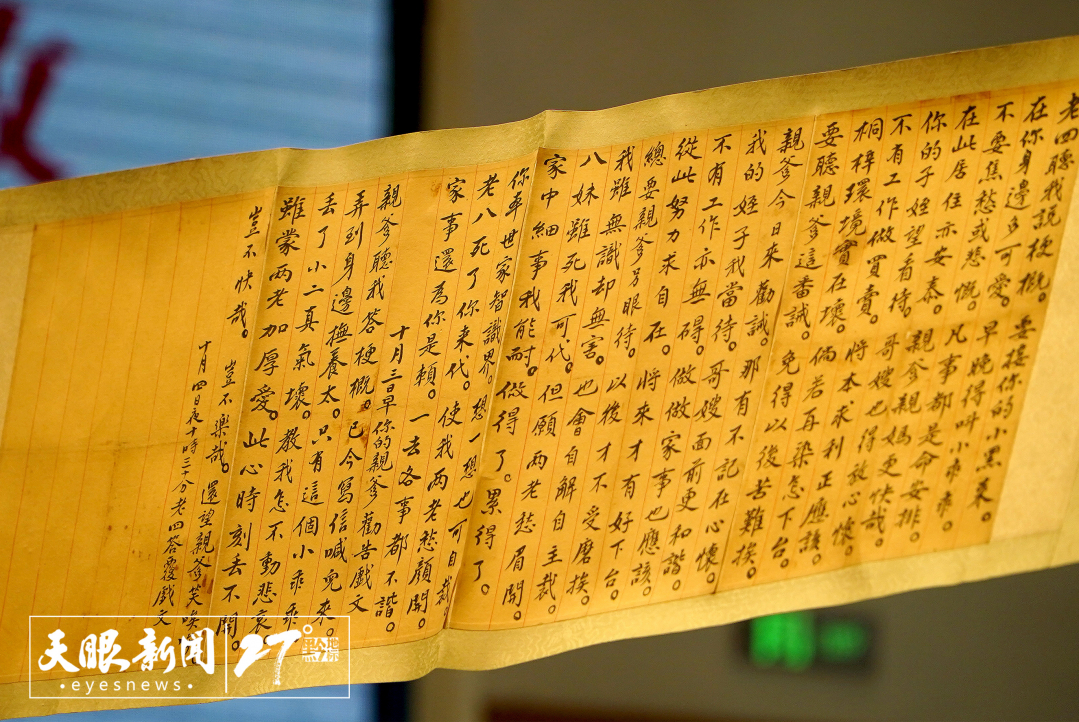 老四聽我說梗概。要接你的小黑來。
在你身邊多可愛。早晚得叫小乖乖。
不要焦愁或悲慨。凡事都是命安排。
在此居住亦安泰。親爹親媽更快哉。
你的子姪望看待。哥嫂也得放心懷。
不有工作做買賣。將本求利正應該。
桐梓環境實在壞。倘若再染怎下台
要聽親爹這番誡。免得以後苦難挨。
親爹今日來勸誡。那有不記在心懷。
我的姪子我當待。哥嫂面前更和諧。
不有工作亦無碍。做做家事也應該。
從此努力求自在。將來才有好下台。
總要親爹另眼待。以後才不受磨挨。
我雖無識却無害。也會自解自主裁。
八妹雖死我可代。但願两老愁眉開。
家中細事我能耐。做得了。累得了。
你平世家智識界。想一想也可自裁
老八死了你来代。使我两老愁顏開。
家事還為你是賴。一去各事都不諧。
十月三日早你的親爹勸告戲文
親爹聽我答梗概。已今寫信喊兒來。
弄到身邊撫養太。只有這個小乖乖
丢了小二真氣壞。教我怎不動悲哀
雖蒙两老加厚愛。此心時刻去不開。
豈不快哉。豈不樂哉。還望親爹笑唉
十月四日夜十時三十分老四答覆戲文
天眼新闻
27°
·eyesnews·